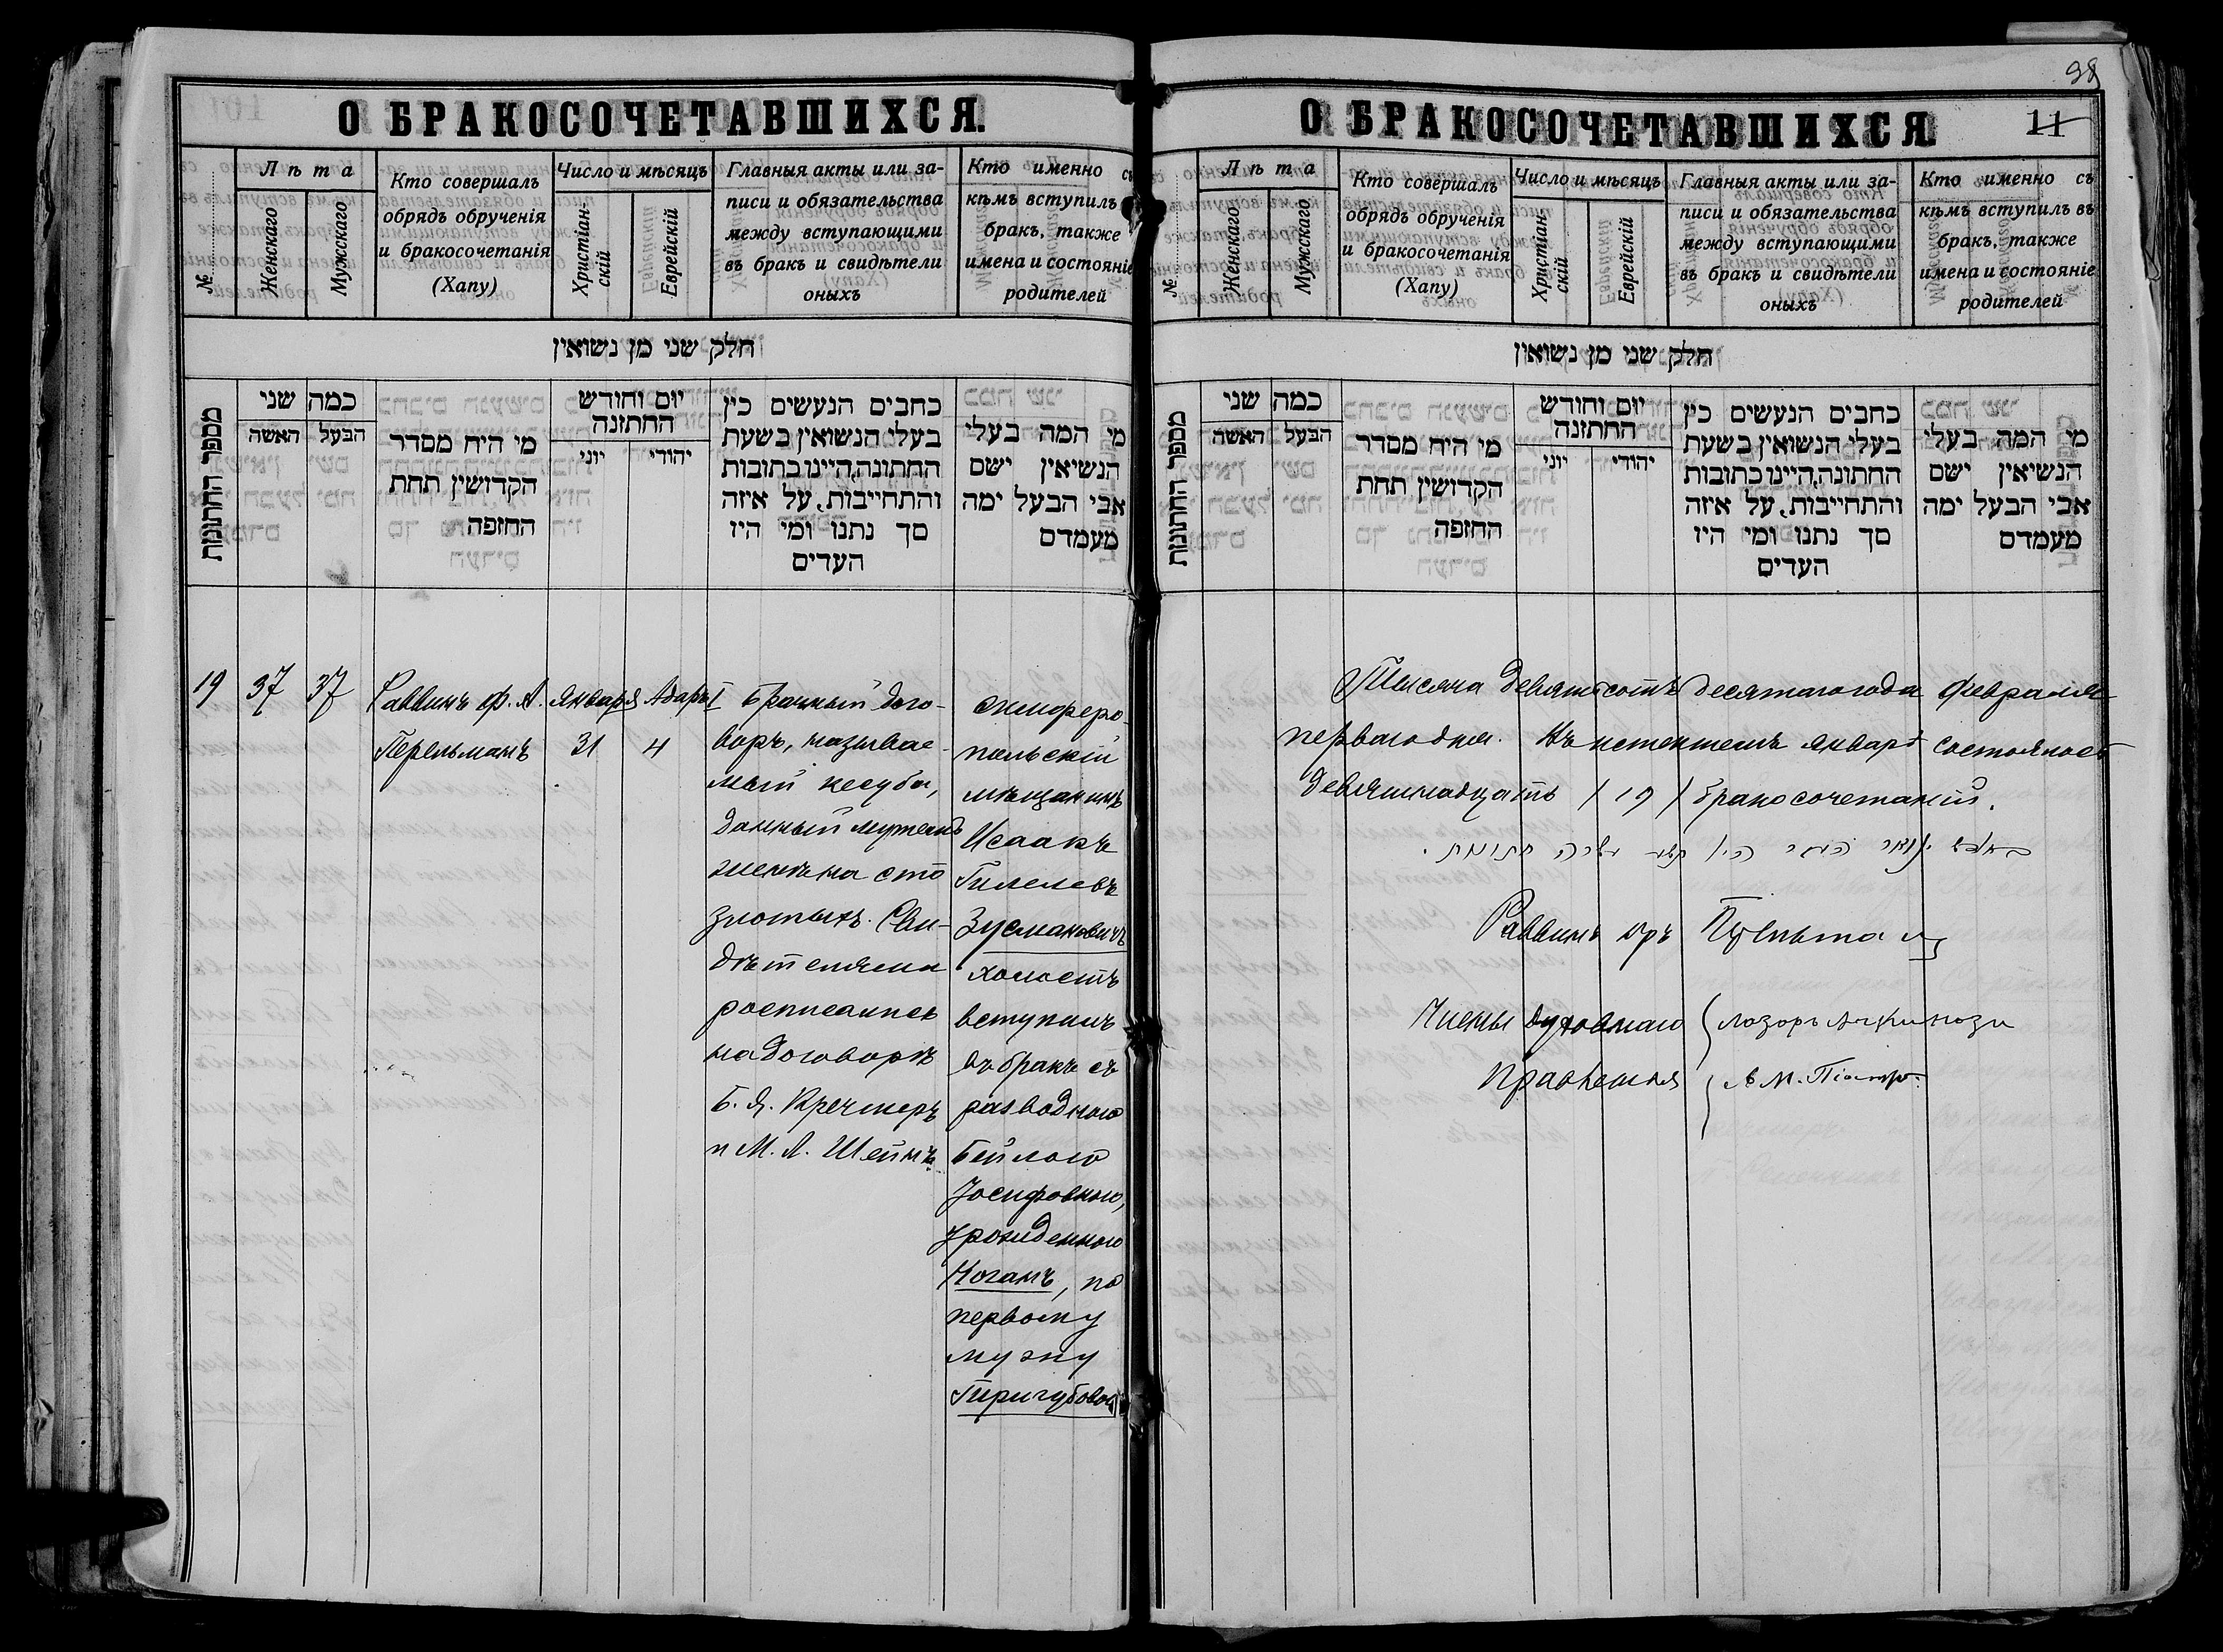 О БРАКОСОЧЕТАВШИХСЯ.
№
Лѣта
Женскаго
Мужскаго
Кто совершалъ
обрядъ обрученія
и бракосочетанія
(Хапу)
Число и мѣсяцъ
Христіан-
скій
Еврейскій
Главныя акты или за-
писи и обязательства
между вступающими
въ бракъ и свидѣтели
оныхъ
Кто именно съ
кѣмъ вступилъ
бракъ, также
имена и состояніе
родителей
חלק שני מן נשואין
מספר החתונות
כמה שני
האשה
הבעל
מי היח מסדר
הקדושין תחת
החופה
יום וחודש
החתונה
יוני
יהודי
כתבים הנעשים בין
בעלי הנשואין בשעת
החתונה, היינו כתובות
והתחייבות, על איזה
סך נתנו ומי היו
העדים
מי המה בעלי
הנשיאין ישם
אבי הבעל ימה
מעמדם
19
37
37
Раввинъ ф. А.
Перельманъ
Января
31
Адаръ I
4
Брачный дого-
воръ, называе-
мый кесуба,
данный мужемъ
женѣ на сто
злотыхъ. Сви-
дѣтелями
росписались
на договорѣ
Б. Я. Кречмеръ
и М. Л. Шейнъ
Симферо-
польскій
мѣщанинъ
Исаакъ
Гилелевъ
Зусмановичъ
холостъ
вступилъ
въ бракъ съ
разводною
Бейлою
Іосифовною,
урожденною
Коганъ, по
первому
мужу
Тиригубовой
98
О БРАКОСОЧЕТАВШИХСЯ
11
№
Лѣта
Женскаго
Мужскаго
Кто совершалъ
обрядъ обрученія
и бракосочетанія
(Хапу)
Число и мѣсяцъ
Христіан-
скій
Еврейскій
Главныя акты или за-
писи и обязательства
между вступающими
въ бракъ и свидѣтели
оныхъ
Кто именно съ
кѣмъ вступилъ въ
бракъ, также
имена и состояніе
родителей
חלק שני מן נשואין
מספר החתונות
כמה שני
האשה
הבעל
מי היח מסדר
הקדושין תחת
החופה
יום וחודש
החתונה
יוני
יהודי
כתבים הנעשים בין
בעלי הנשואין בשעת
החתונה, היינו כתובות
והתחייבות, על איזה
סך נתנו ומי היו
העדים
מי המה בעלי
הנשיאין ישם
אבי הבעל ימה
מעמדם
Тысяча девятьсотъ десятаго года февраля
перваго дня. Въ истекшемъ январѣ состоялось
девятнадцать / 19 / бракосочетаній.
תשע עשרה חתונות.
Раввинъ
Члены духовнаго
Правленія
Лазарь Ашкинази
М.